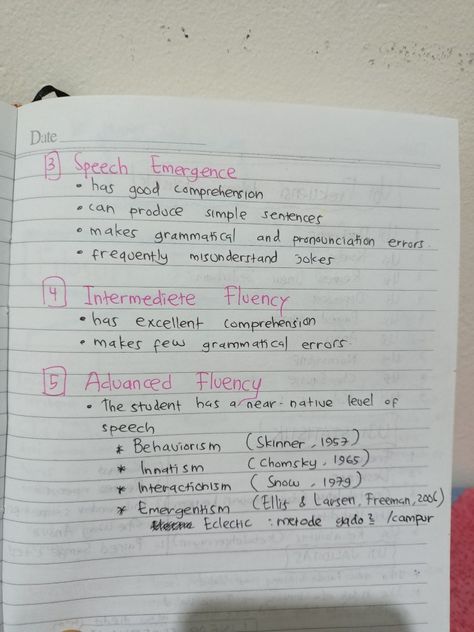 Date
3 Speech Emergence
• has good comprehension
• can produce simple sentences
• makes grammatical and pronounciation errors.
• frequently misunderstand jokes
4 Intermediete Fluency
• has excellent comprehension
• makes few grammatical errors
5 Advanced Fluency
• The student has a near-native level of
speech
* Behaviorism (Skinner, 1957)
* Innatism (Chomsky, 1965)
* Interactionism (Snow, 1979)
* Emergentism (Ellis & Larsen, Freeman, 2006)
Eclectic : metode gado2 /campur